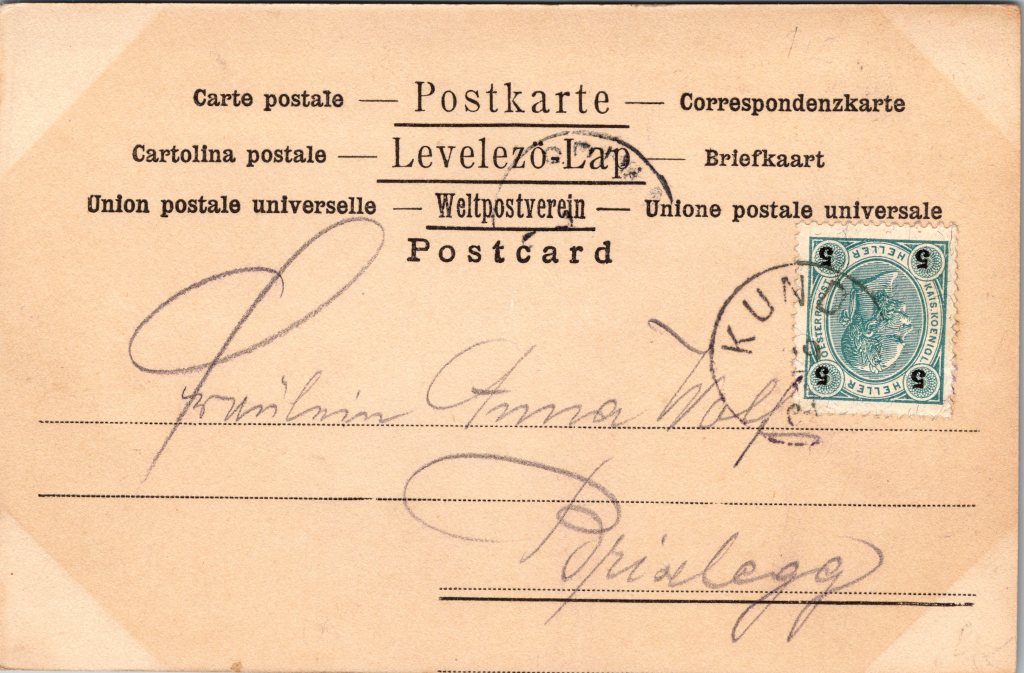 Carte postale — Postkarte — Correspondenzkarte
Cartolina postale — Levelező-Lap — Briefkaart
Union postale universelle — Weltpostverein — Unione postale universale
Postcard
5 HELLER 5
KAIS. KOENIGL. OESTERR. POST
5 HELLER 5
KUND
Fräulein Anna Wolf
Brixlegg